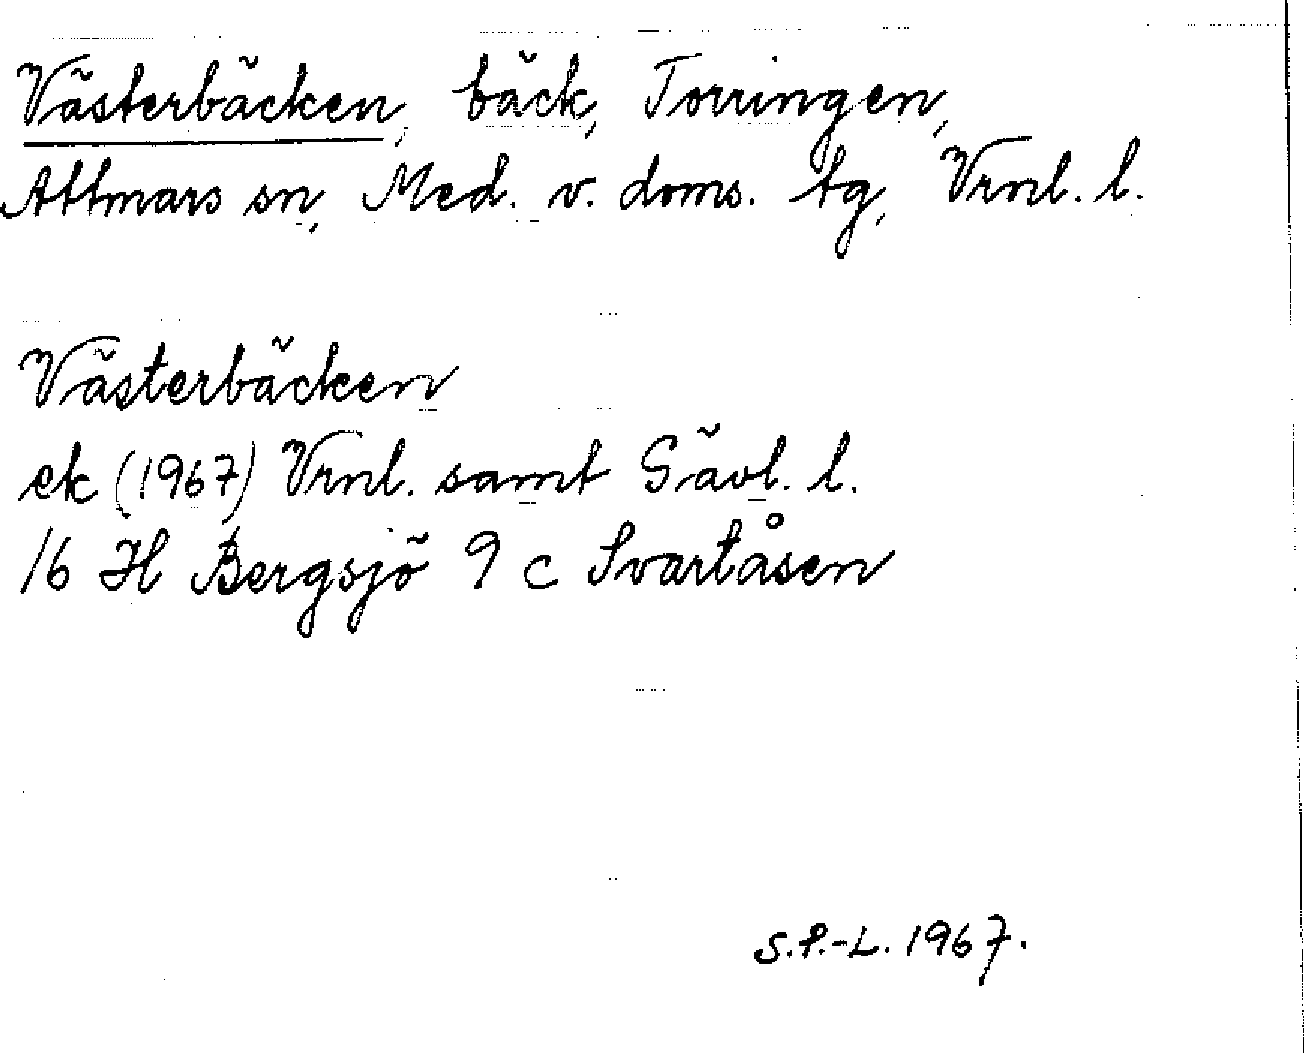 Västerbäcken, bäck, Torringen,
Attmars sn, Med. v. doms. tg, Vrnl. l.
Västerbäcken
ek (1967) Vrnl. samt Gävl. l.
16 H Bergsjö 9 c Svartåsen
S.P.-L. 1967.